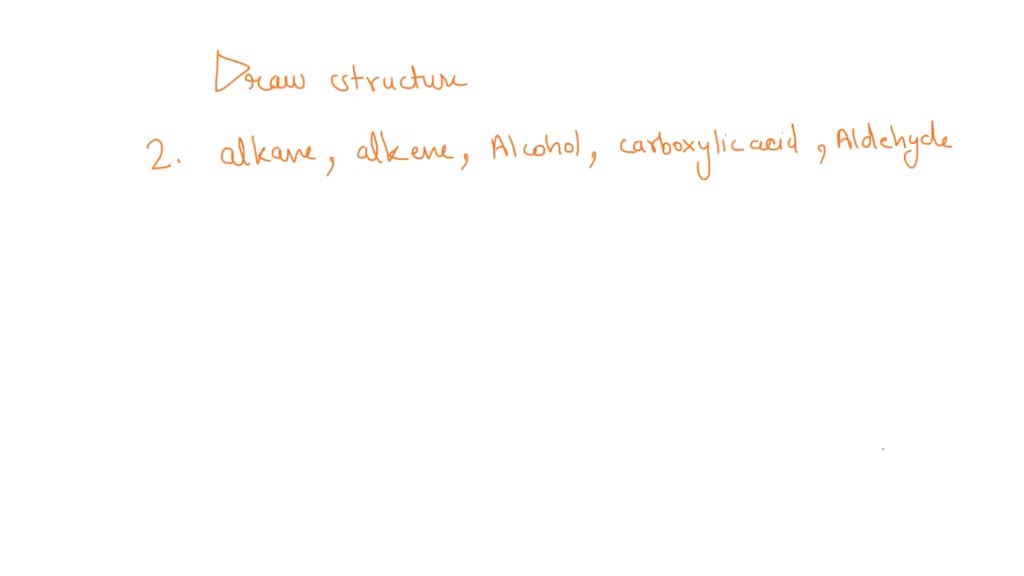 Draw structure
2. alkane, alkene, Alcohol, carboxylic acid, Aldehyde